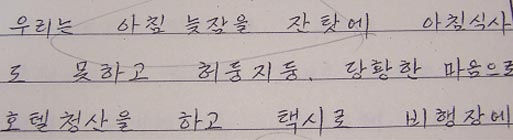 우리는 아침 늦잠을 잔 탓에 아침식사
도 못하고 허둥지둥, 당황한 마음으로
호텔청산을 하고 택시로 비행장에